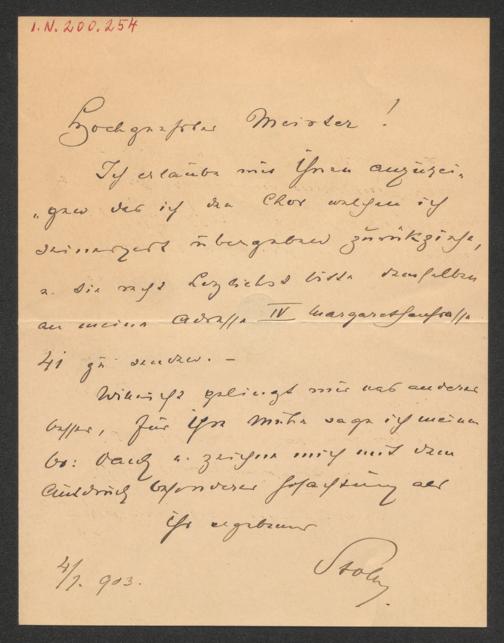 I.N. 200.254
Hochgeehrter Meister!
Ich erlaube mir Ihnen anzuzei-
„gen das ich den Chor welchen ich
seinerzeit übergeben zurückziehe,
u. Sie recht herzlichst bitte denselben
an meine Adresse IV Margarethenstrasse
41 zu senden. —
Vielleicht gelingt mir was anderes
besser, für Ihre Mühe sage ich meinen
be: Dank u. zeichne mich mit dem
Ausdruck besonderer Hochachtung als
Ihr ergebener
903.